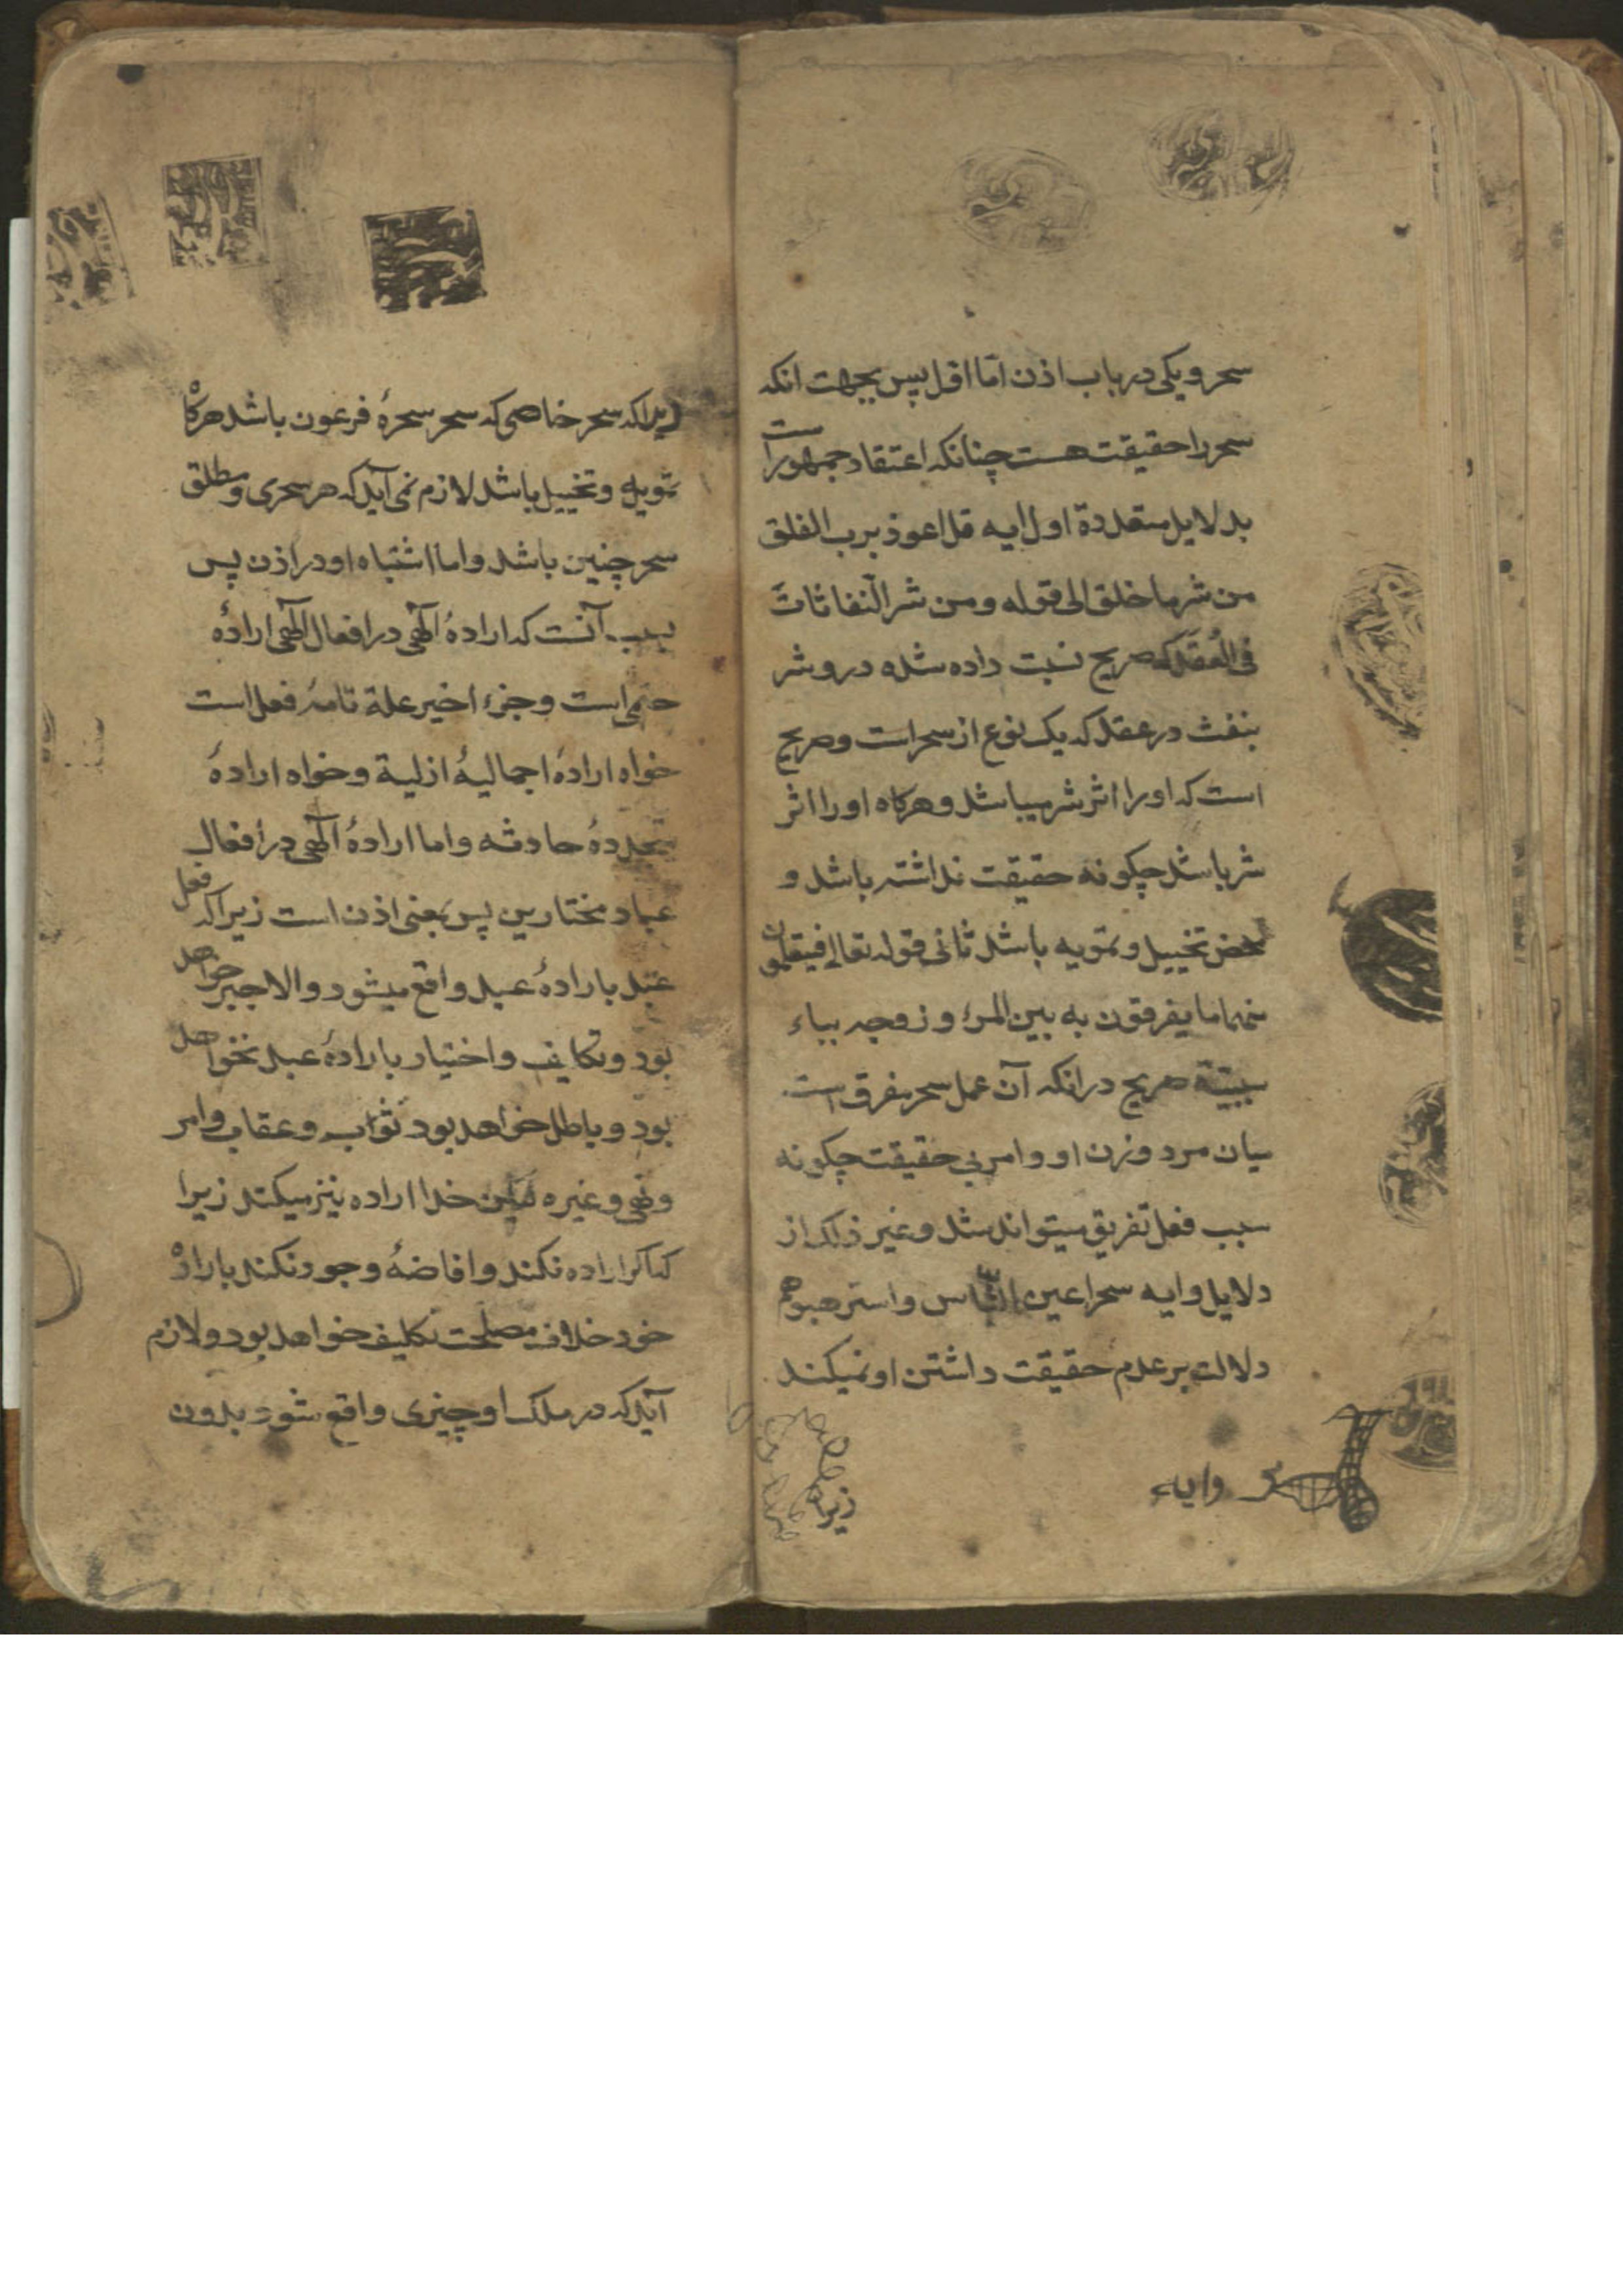 سحر و یکی در باب اذن اما اول پس بجهت انکه
سحر را حقیقت هست چنانکه اعتقاد جمهور است
بدلایل متعددة اول ایه قل اعوذ برب الفلق
من شر ما خلق الی قوله و من شر النفاثات
فی العقد که صریح نسبت داده شده در و شر
بنفث در عقد که یک نوع از سحر است و صریح
است که او را اثر شر میباشد و هرکاه او را اثر
شر باشد چکونه حقیقت نداشته باشد و
محض تخییل و تمویه باشد ثانی قوله تعالی فیتعلمون
منهما ما یفرقون به بین المرء و زوجه بباء
سببیّة صریح در انکه آن عمل سحر مفرق است
میان مرد و زن او و امر بی حقیقت چکونه
سبب فعل تفریق میتواند شد و غیر ذلک از
دلایل و ایه سحر اعین النّاس و استرهبوهم
دلالت بر عدم حقیقت داشتن او نمیکند
وایه
زیرا
زیرا که سحر خاصی که سحر سحرهٔ فرعون باشد هرکاه
تمویه و تخییل باشد لازم نمی آید که هر سحری و مطلق
سحر چنین باشد و اما اشتباه او در اذن پس
بسبب آنست که ارادهٔ آلهی در افعال آلهی ارادهٔ
حتمی است و جزء اخیر علة تامهٔ فعل است
خواه ارادهٔ اجمالیهٔ ازلیة و خواه ارادهٔ
متجددهٔ حادثه و اما ارادهٔ آلهی در افعال
عباد مختارین پس بمعنی اذن است زیرا که فعل
عبد بارادهٔ عبد واقع میشود و الا جبر خواهد
بود و تکلیف و اختیار بارادهٔ عبد نخواهد
بود و باطل خواهد بود ثواب و عقاب و امر
و نهی و غیره لیکن خدا اراده نیز میکند زیرا
که اگر اراده نکند و افاضهٔ وجود نکند بارادهٔ
خود خلاف مصلحت تکلیف خواهد بود و لازم
آید که در ملک او چیزی واقع شود بدون